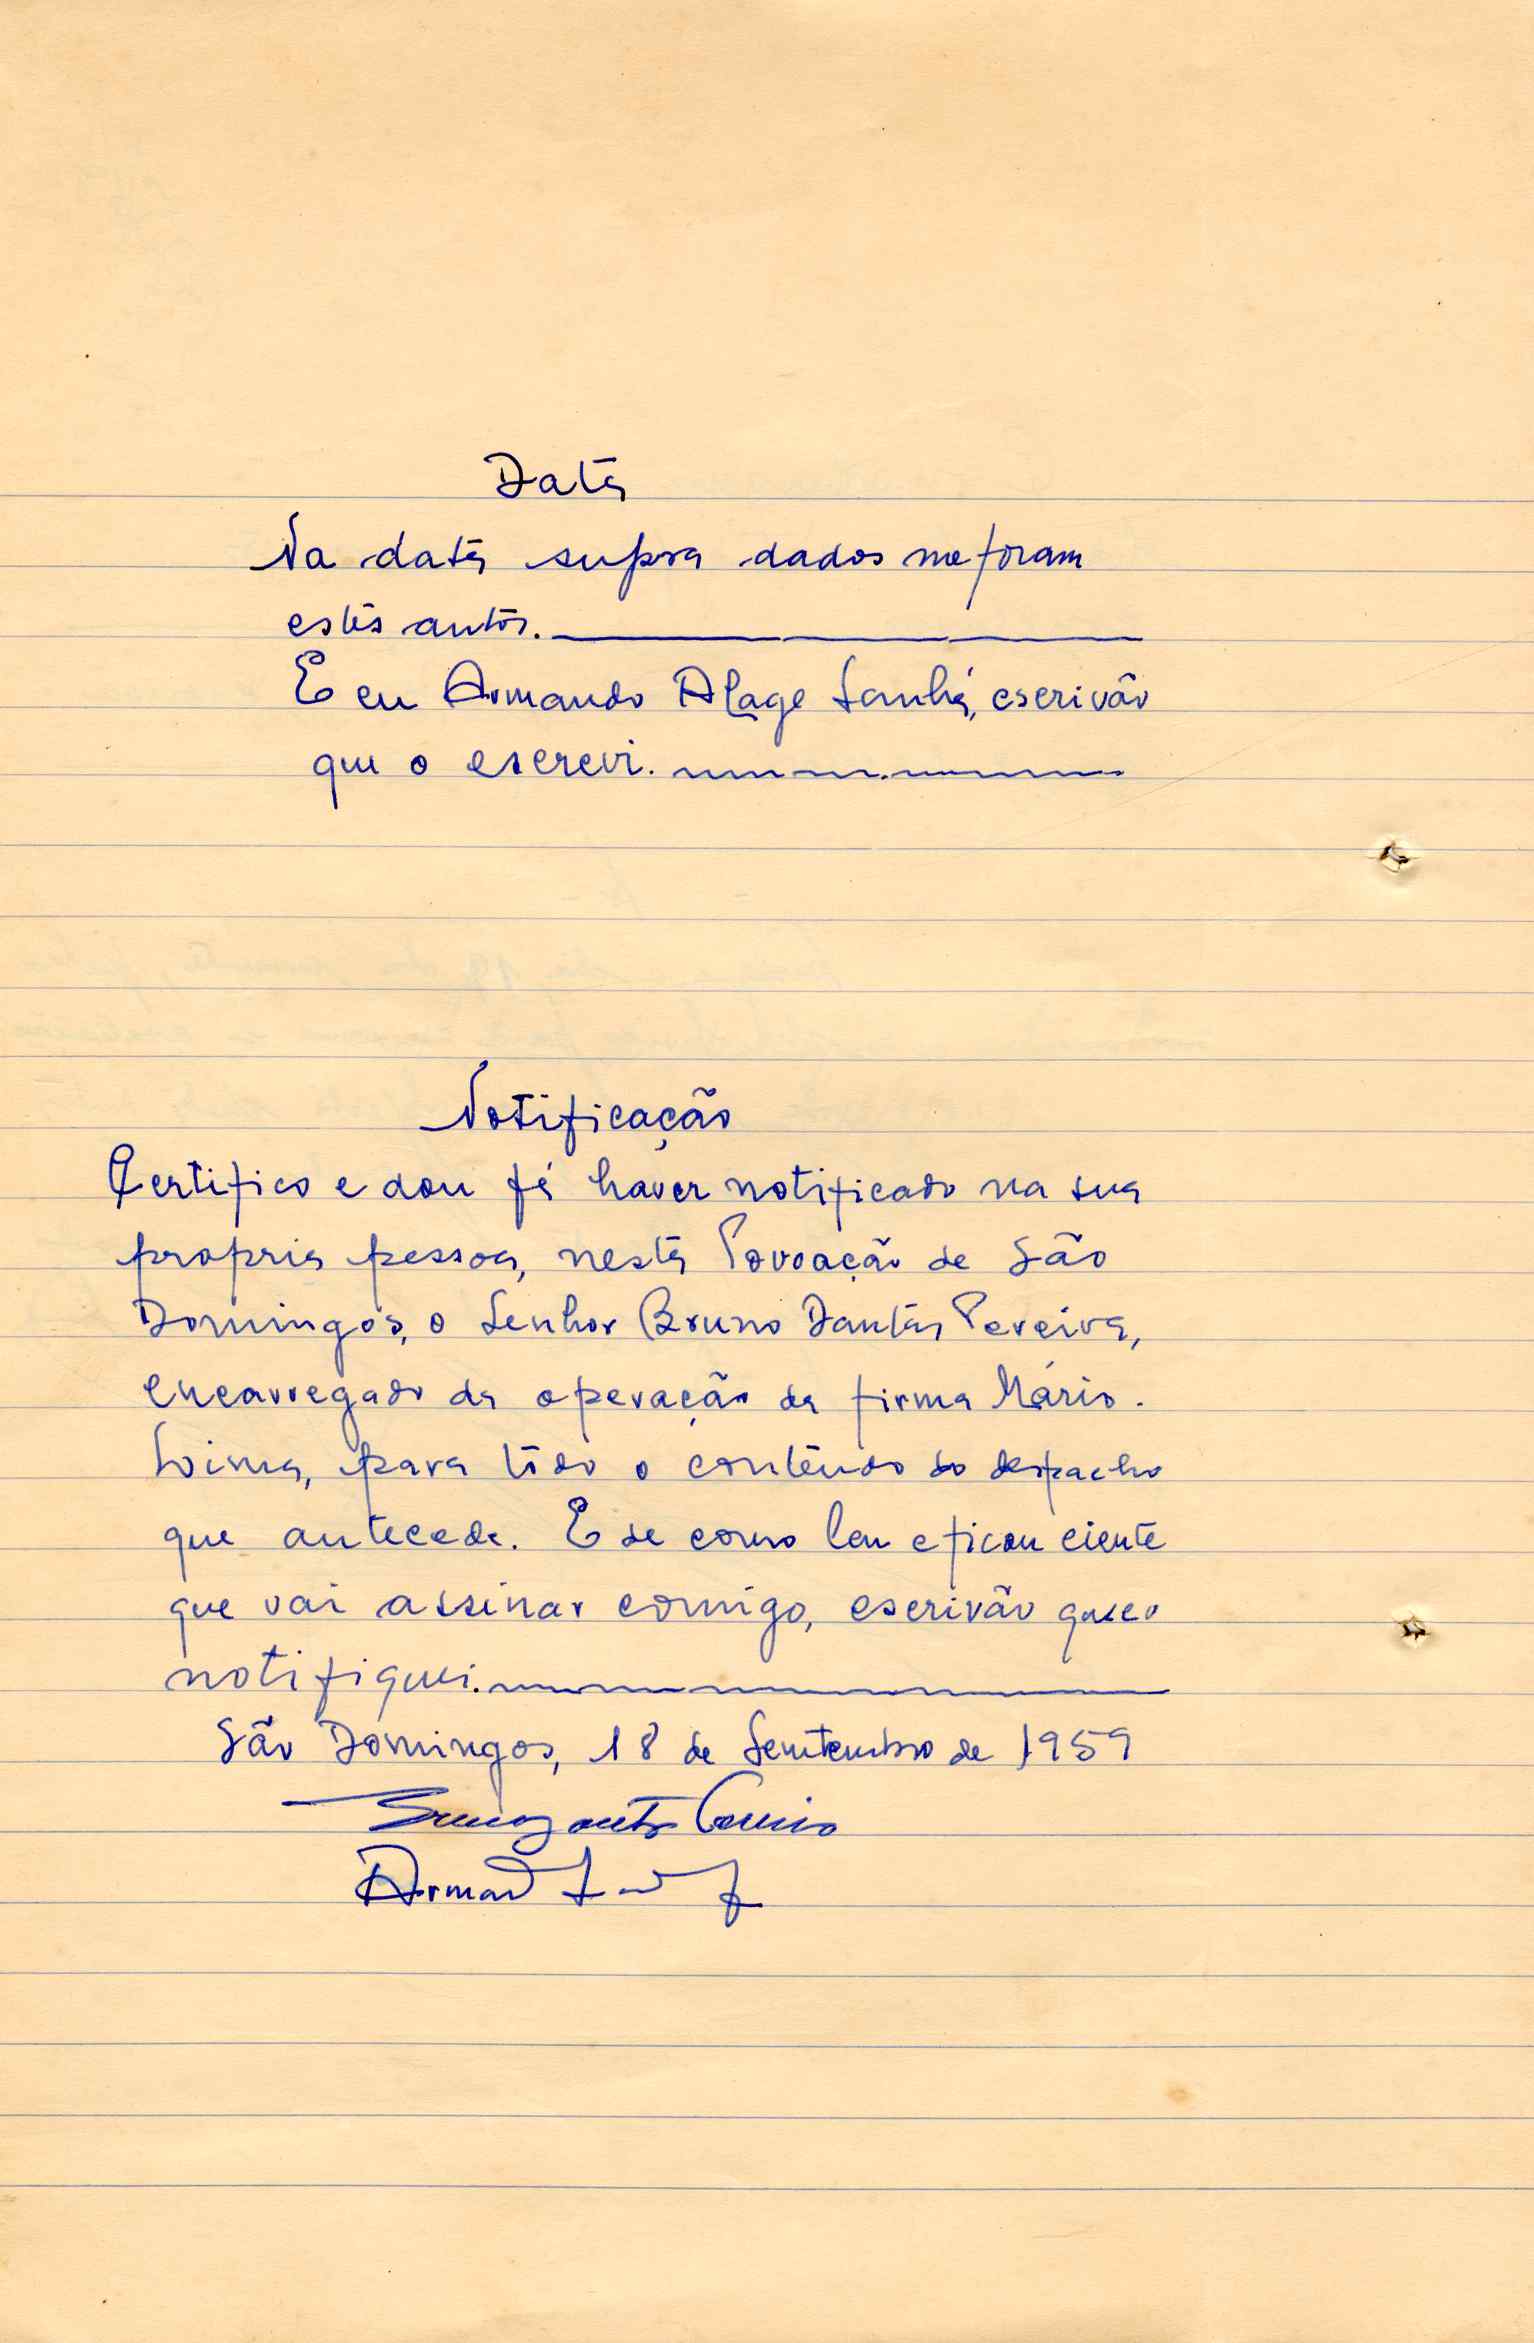 Data
Na data supra dados me foram
estes autos.
E eu Armando Alage Sanhá, escrivão
que o escrevi.
Notificação
Certifico e dou fé haver notificado na sua
propria pessoa, nesta Povoação de São
Domingos, o Senhor Bruno Dantas Pereira,
encarregado da operação da firma Mário.
Loima, para tôdo o contêudo do despacho
que antecede. E de como leu e ficou ciente
que vai assinar comigo, escrivão que o
notifiquei.
São Domingos, 18 de Semtembro de 1959